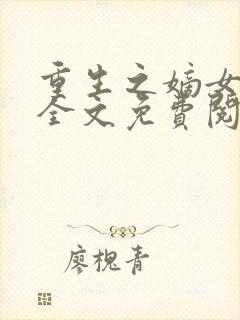 重生之嫡女
全文免費閱
廖槐青